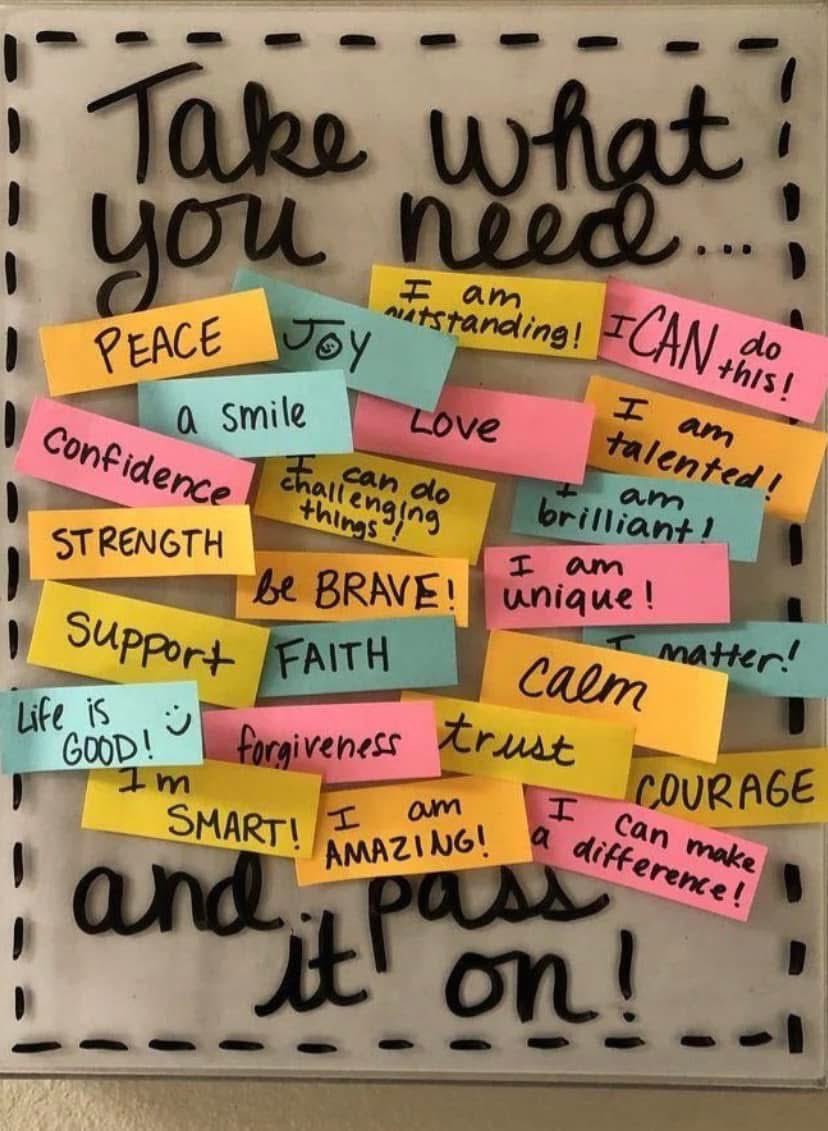 Take what
you need...
PEACE
JOY
I am
outstanding!
I CAN do
this!
a smile
Love
I am
talented!
Confidence
I can do
challenging
things!
I am
brilliant!
STRENGTH
be BRAVE!
I am
unique!
Support
FAITH
I matter!
Calm
Life is
GOOD!
forgiveness
trust
COURAGE
Im
SMART!
I am
AMAZING!
I can make
a difference!
and pass
it on!